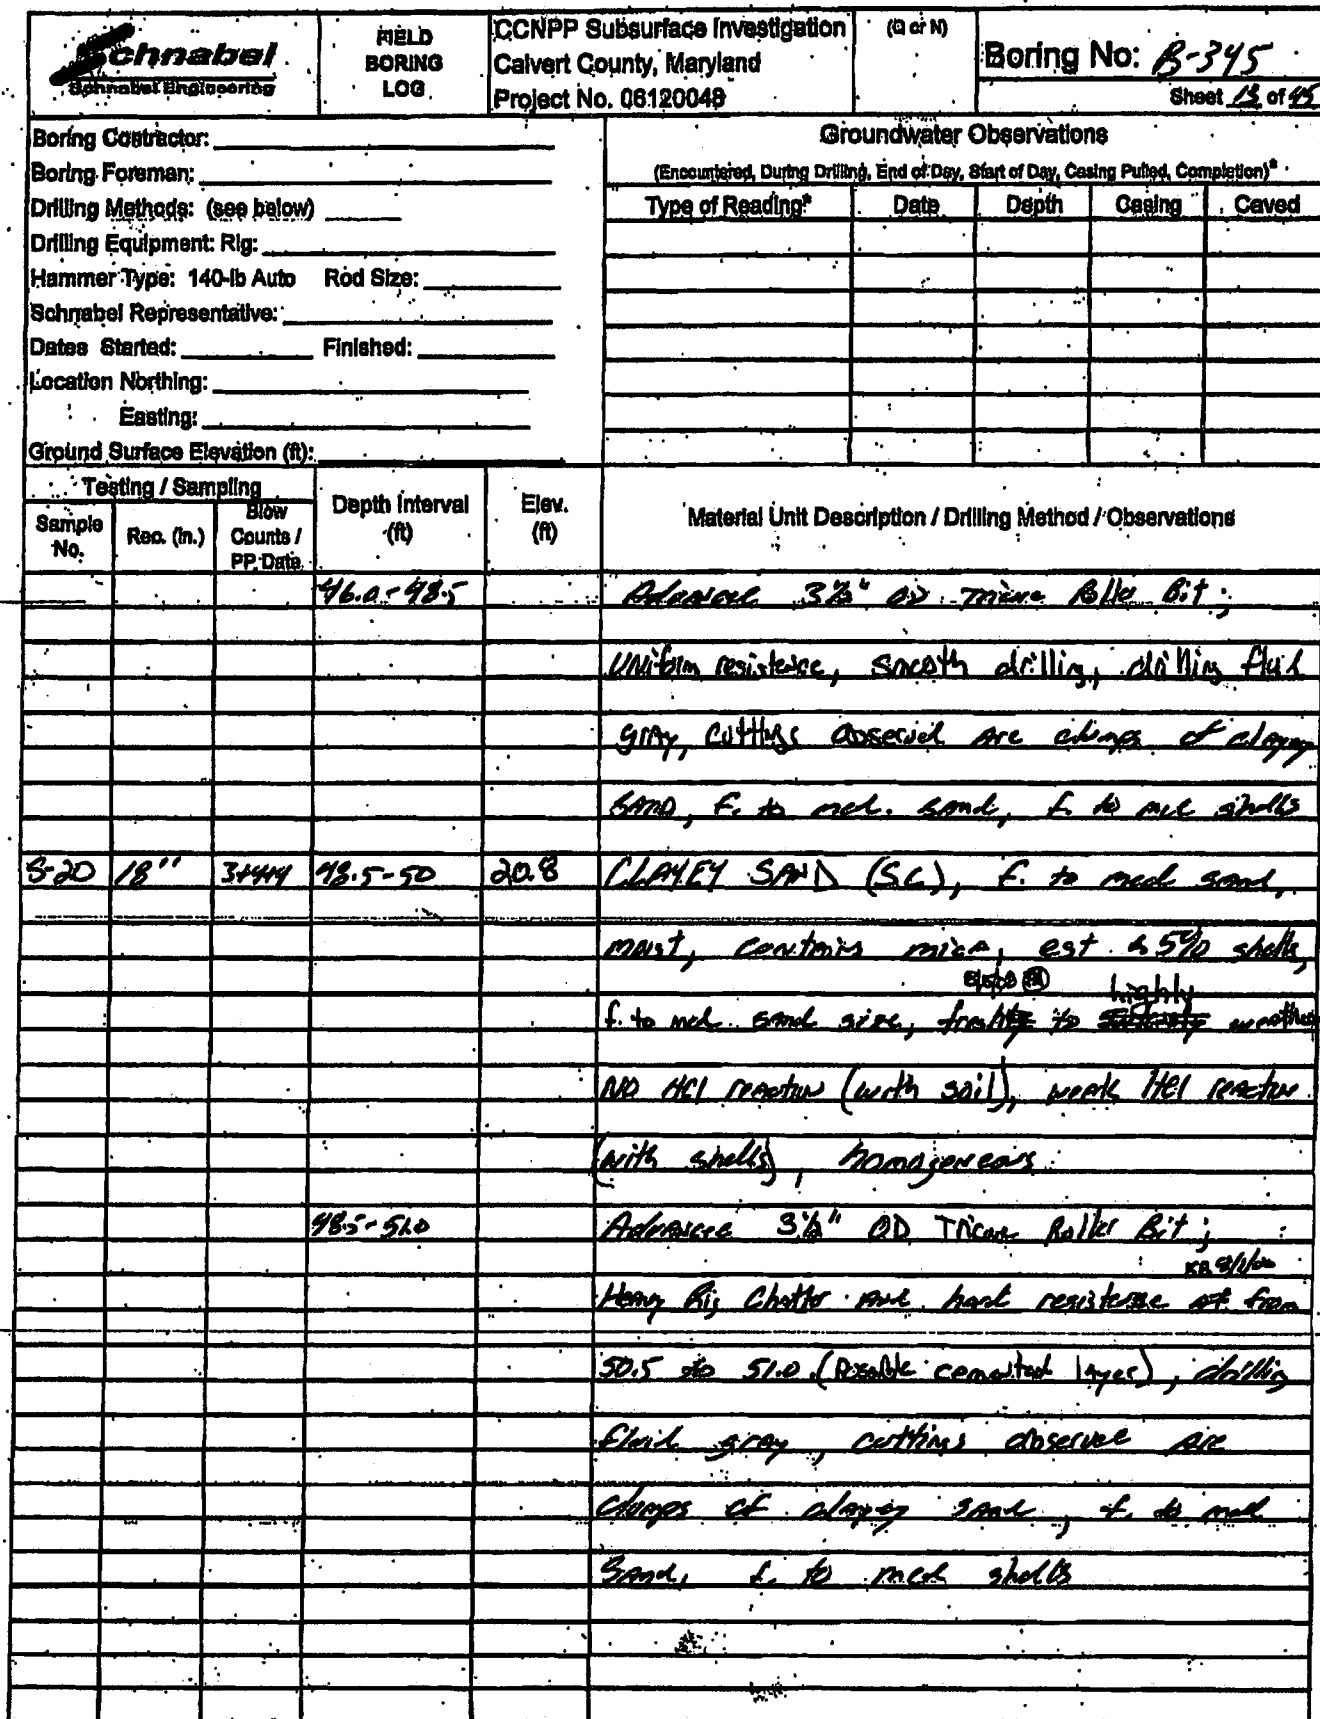 Schnabel
Schnabel Engineering
FIELD
BORING
LOG
CCNPP Subsurface Investigation
Calvert County, Maryland
Project No. 06120048
(Q or N)
Boring No: B-345
Sheet 13 of 45
Boring Contractor:
Boring Foreman:
Drilling Methods: (see below)
Drilling Equipment: Rig:
Hammer Type: 140-lb Auto Rod Size:
Schnabel Representative:
Dates Started: Finished:
Location Northing:
Easting:
Ground Surface Elevation (ft):
Groundwater Observations
(Encountered, During Drilling, End of Day, Start of Day, Casing Pulled, Completion)*
Type of Reading* Date Depth Casing Caved
Testing / Sampling
Sample No. Rec. (in.) Blow Counts / PP Data Depth Interval (ft) Elev. (ft) Material Unit Description / Drilling Method / Observations
46.0-48.5 Advanced 3 7/8" OD Tricone Roller Bit;
Uniform resistence, smooth drilling, drilling fluid
gray, cuttings observed are clumps of clayey
SAND, F. to med. sand, f. to med shells
S-20 18" 3+4+4 48.5-50 20.8 CLAYEY SAND (SC), F. to med sand,
moist, contains mica, est 5% shells,
highly
f. to med. sand size, fresh to weathered
NO HCl reaction (with soil), weak HCl reaction
(with shells), homogeneous
48.5-51.0 Advance 3 7/8" OD Tricone Roller Bit;
Heavy Rig Chatter and hard resistence at from
50.5 to 51.0 (Possible cemented layer), drilling
fluid gray, cuttings observed are
clumps of clayey sand, f. to med
Sand, f. to med shells